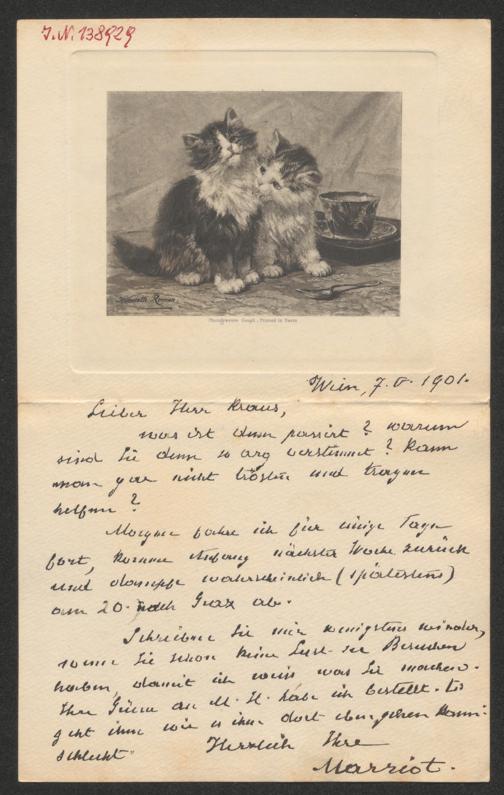 J.N. 138929
Henriette Ronner
Photogravure Goupil. Printed in Paris
Wien, 7. V. 1901.
Lieber Herr Kraus,
was ist denn passirt? warum
sind Sie denn so arg verstimmt? Kann
man gar nicht trösten und tragen
helfen?
Morgen fahre ich für einige Tage
fort, komme Anfang nächster Woche zurück
und dampfe wahrscheinlich (spätestens)
am 20. nach Graz ab.
Schreiben Sie mir wenigstens wieder,
wenn Sie schon keine Lust zu Besuchen
haben, damit ich weiss was Sie machen.
Ihre Grüsse an M. H. habe ich bestellt. Es
geht ihm wie es ihm dort eben gehen kann:
schlecht"
Herzlich Ihre
Marriot.